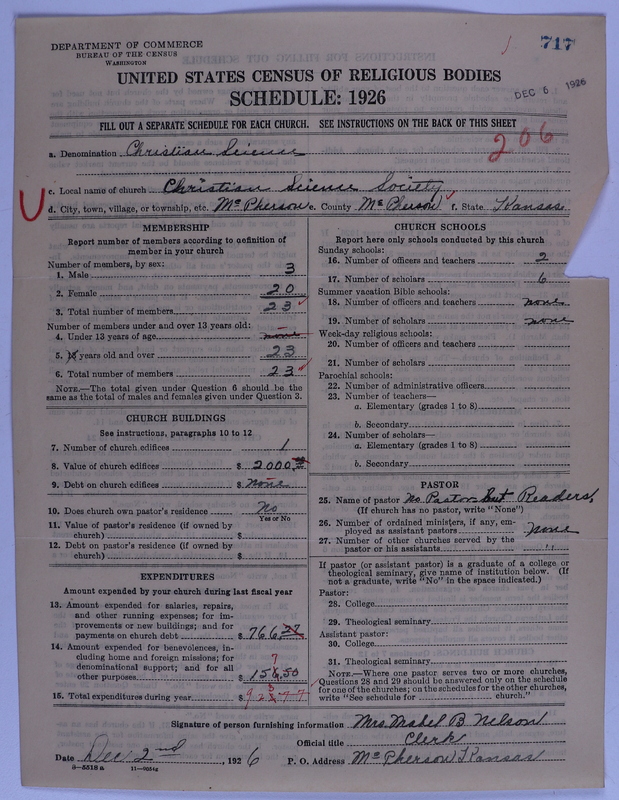 DEPARTMENT OF COMMERCE
BUREAU OF THE CENSUS
WASHINGTON
717
UNITED STATES CENSUS OF RELIGIOUS BODIES
SCHEDULE: 1926
DEC 6 1926
FILL OUT A SEPARATE SCHEDULE FOR EACH CHURCH. SEE INSTRUCTIONS ON THE BACK OF THIS SHEET
206
a. Denomination Christian Science
c. Local name of church Christian Science Society
d. City, town, village, or township, etc. McPherson e. County McPherson f. State Kansas
MEMBERSHIP
Report number of members according to definition of
member in your church
Number of members, by sex:
1. Male 3
2. Female 20
3. Total number of members 23
Number of members under and over 13 years old:
4. Under 13 years of age none
5. 13 years old and over 23
6. Total number of members 23
NOTE.—The total given under Question 6 should be the
same as the total of males and females given under Question 3.
CHURCH BUILDINGS
See instructions, paragraphs 10 to 12
7. Number of church edifices 1
8. Value of church edifices $ 2000
9. Debt on church edifices $ none
10. Does church own pastor's residence? No
Yes or No
11. Value of pastor's residence (if owned by
church) $
12. Debt on pastor's residence (if owned by
church) $
EXPENDITURES
Amount expended by your church during last fiscal year
13. Amount expended for salaries, repairs,
and other running expenses; for im-
provements or new buildings; and for
payments on church debt $ 766.27
14. Amount expended for benevolences, in-
cluding home and foreign missions; for
denominational support; and for all
other purposes $ 156.50
15. Total expenditures during year $
CHURCH SCHOOLS
Report here only schools conducted by this church
Sunday schools:
16. Number of officers and teachers 2
17. Number of scholars 6
Summer vacation Bible schools:
18. Number of officers and teachers none
19. Number of scholars none
Week-day religious schools:
20. Number of officers and teachers
21. Number of scholars
Parochial schools:
22. Number of administrative officers
23. Number of teachers—
a. Elementary (grades 1 to 8)
b. Secondary
24. Number of scholars—
a. Elementary (grades 1 to 8)
b. Secondary
PASTOR
25. Name of pastor No Pastor but Readers,
(If church has no pastor, write "None")
26. Number of ordained ministers, if any, em-
ployed as assistant pastors none
27. Number of other churches served by the
pastor or his assistants "
If pastor (or assistant pastor) is a graduate of a college or
theological seminary, give name of institution below. (If
not a graduate, write "No" in the space indicated.)
Pastor:
28. College
29. Theological seminary
Assistant pastor:
30. College
31. Theological seminary
NOTE.—Where one pastor serves two or more churches,
Questions 28 and 29 should be answered only on the schedule
for one of the churches; on the schedules for the other churches,
write "See schedule for church."
Signature of person furnishing information Mrs. Mabel B Nelson
Official title Clerk
Date Dec 2nd, 1926 P. O. Address McPherson Kansas
3—5518 a 11—9054g